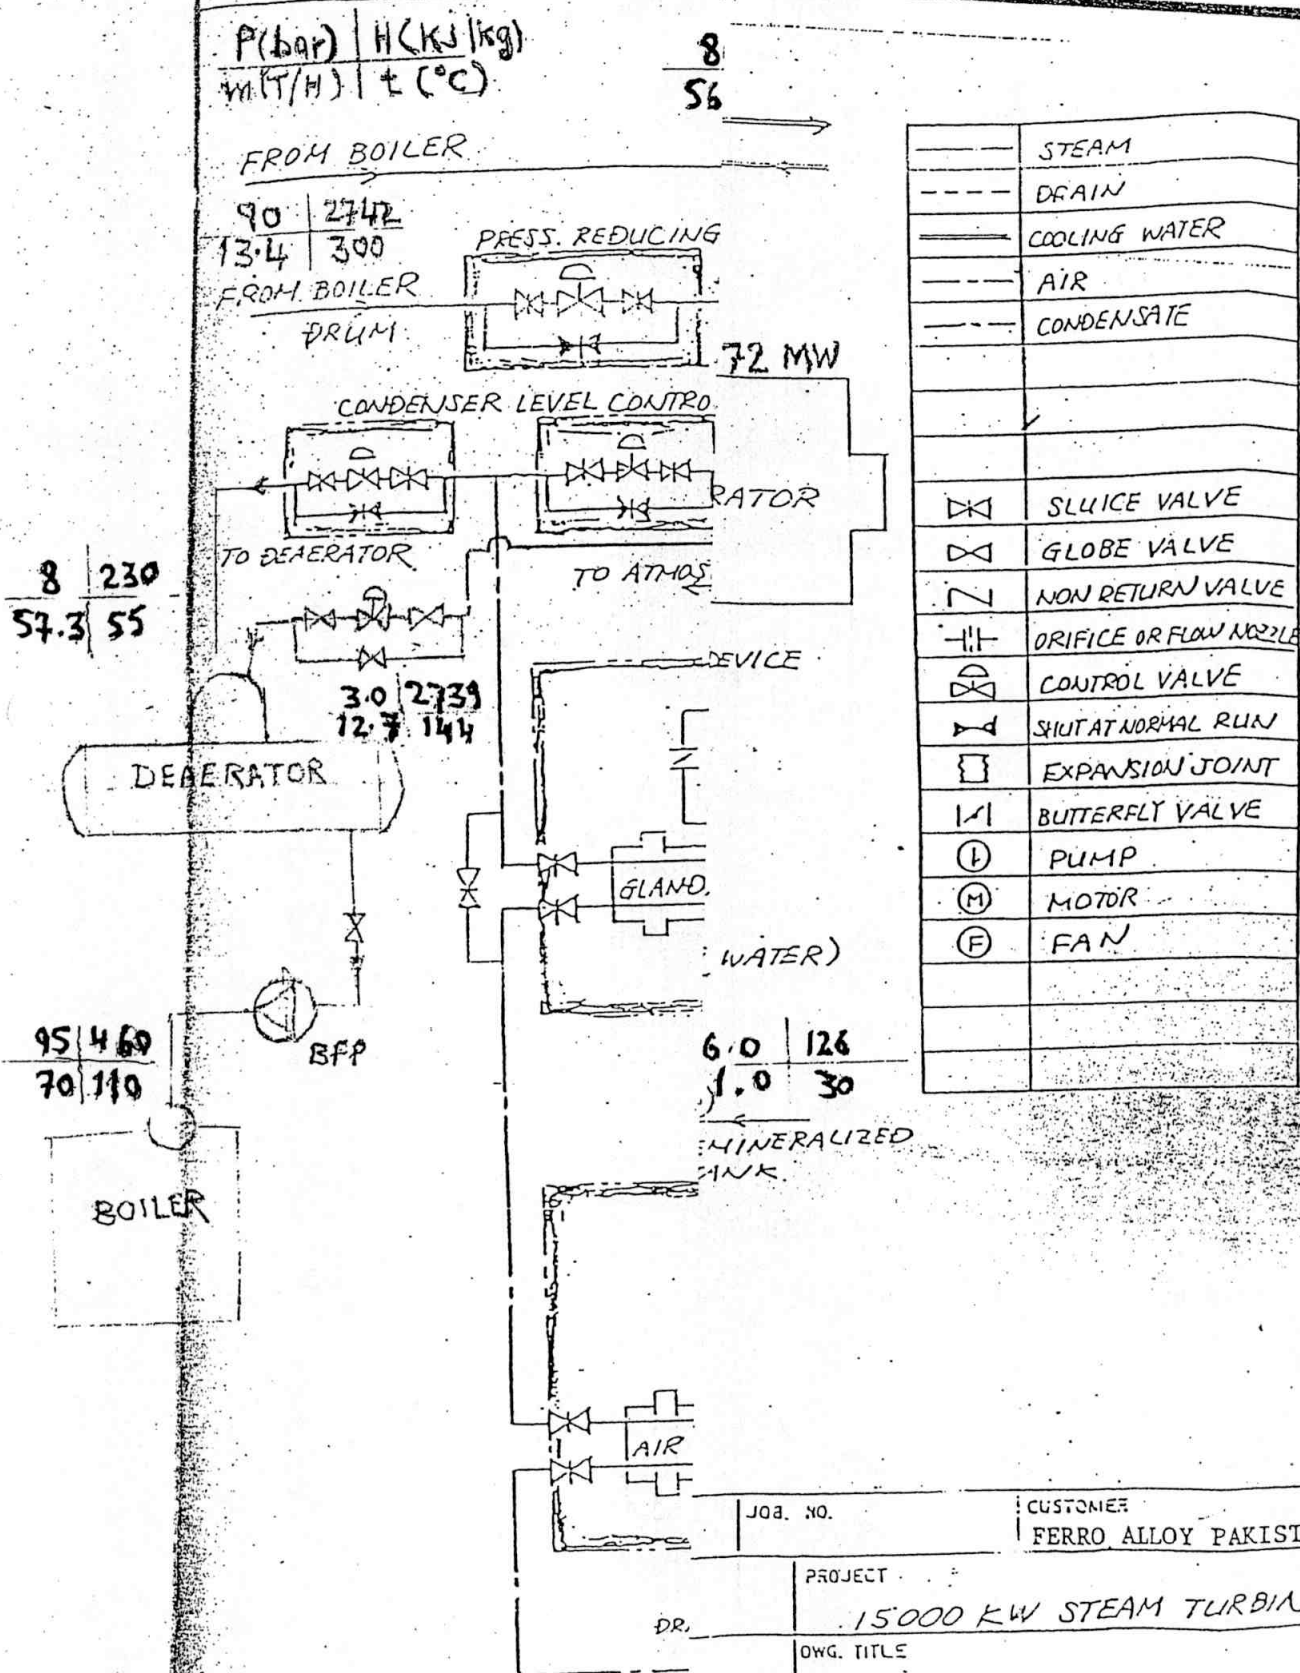 P(bar) | H(KJ/kg)
m(T/H) | t (°C)
8
56
FROM BOILER
90 | 2742
13.4 | 300
FROM BOILER
DRUM
PRESS. REDUCING
72 MW
CONDENSER LEVEL CONTRO
RATOR
TO DEAERATOR
TO ATMOS
8 | 230
57.3 | 55
EVICE
3.0 | 2739
12.7 | 144
DEAERATOR
GLAND.
WATER)
BFP
95 | 460
70 | 110
6.0 | 126
1.0 | 30
EMINERALIZED
ANK.
BOILER
AIR
DR.
STEAM
DRAIN
COOLING WATER
AIR
CONDENSATE
SLUICE VALVE
GLOBE VALVE
NON RETURN VALVE
ORIFICE OR FLOW NOZZLE
CONTROL VALVE
SHUT AT NORMAL RUN
EXPANSION JOINT
BUTTERFLY VALVE
PUMP
M MOTOR
F FAN
JOB. NO.
CUSTOMER
FERRO ALLOY PAKIST
PROJECT
15000 KW STEAM TURBIN
DWG. TITLE